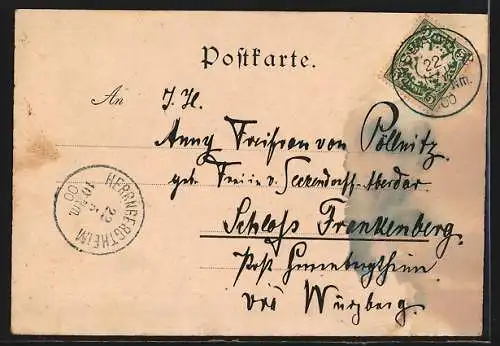 Postkarte.
An I. H.
Anny Freifrau von Pöllnitz
geb. Freiin v. Seckendorff-Aberdar
Schloss Frankenberg.
Post Herrnbergtheim
bei Würzburg.
HERRNBERGTHEIM
22
10
00
22
00